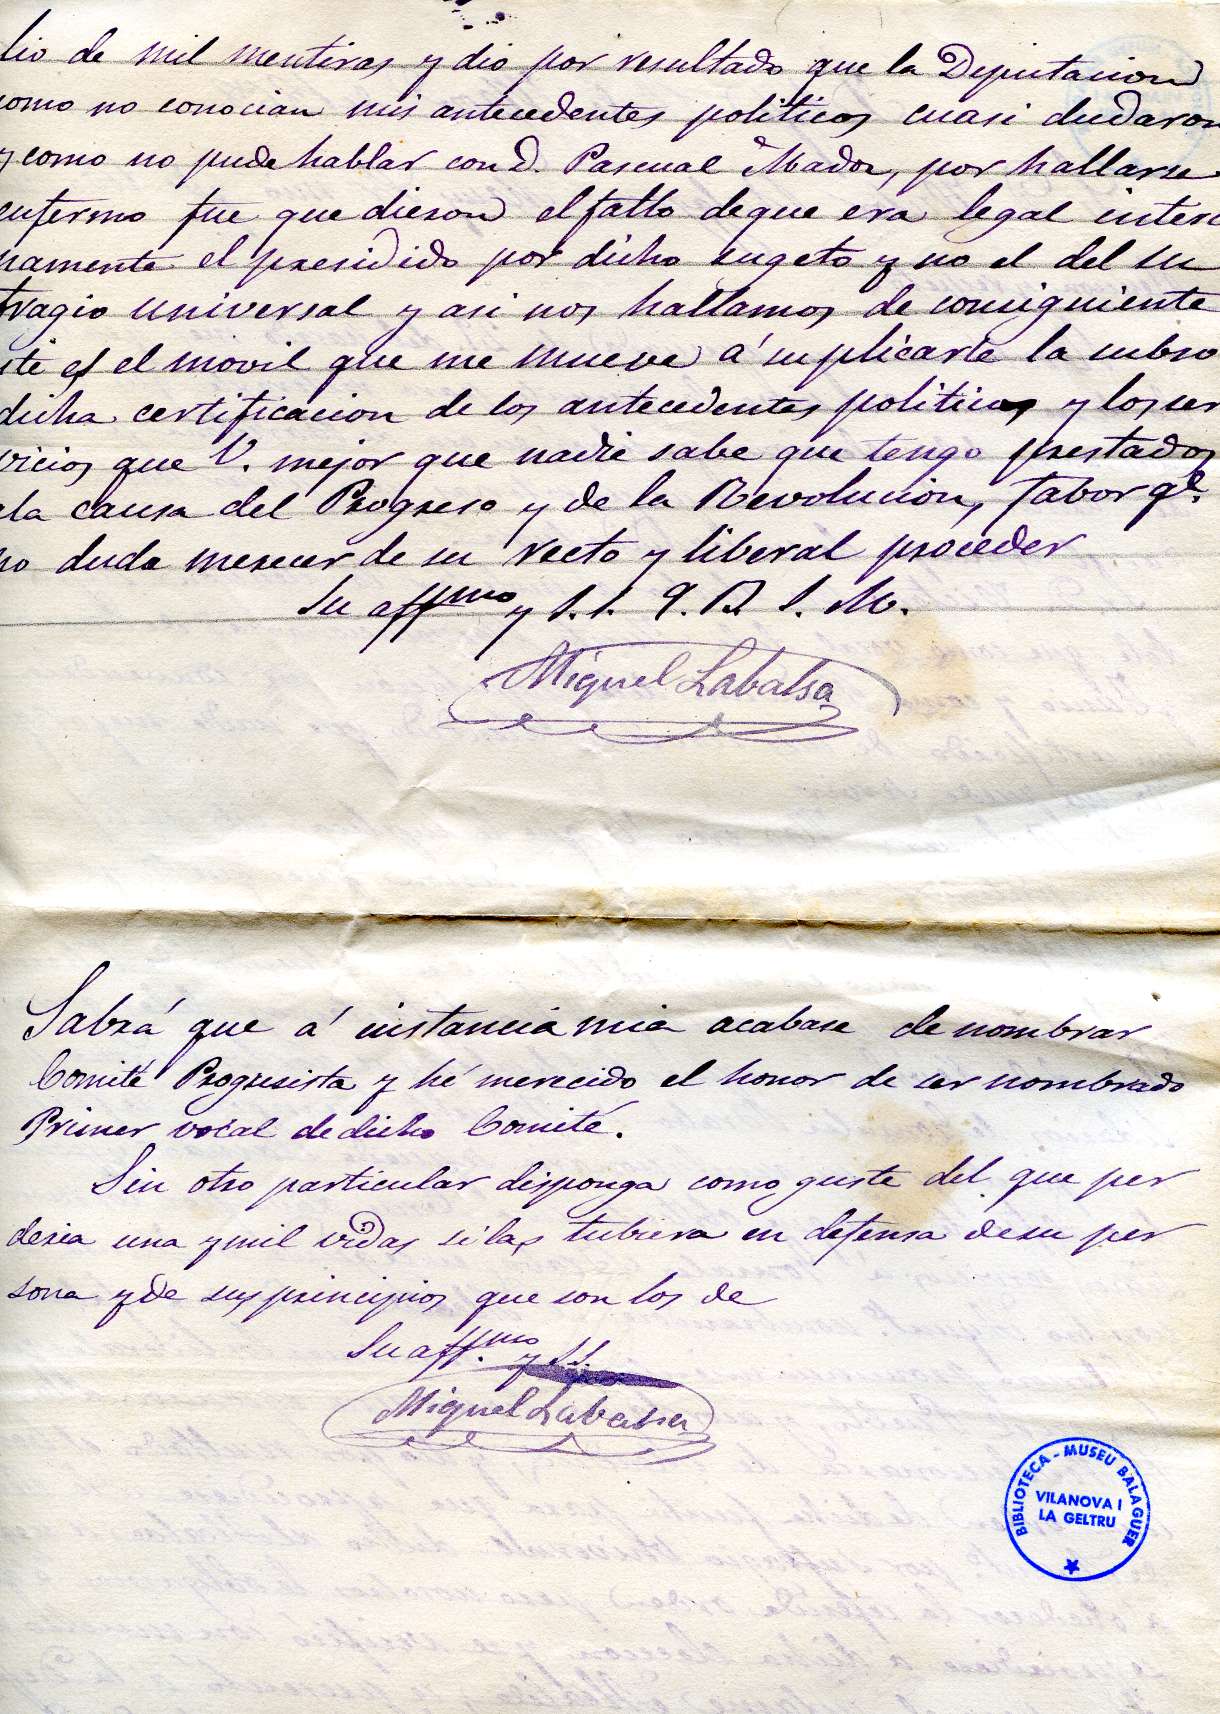 lio de mil mentiras y dio por resultado que la Diputacion
como no conocian mis antecedentes politicos cuasi dudaron
y como no pude hablar con D. Pascual Madoz, por hallarse
enfermo fue que dieron el fallo de que era legal interi
namente el presidido por dicho sugeto y no el del su
fragio universal y asi nos hallamos de consiguiente
ste es el movil que me mueve á suplicarle la subso
dicha certificacion de los antecedentes politicos y los ser
vicios que V. mejor que nadie sabe que tengo prestados
ala causa del Progreso y de la Revolucion, fabor qe.
no duda merecer de su recto y liberal proceder
Su affmo y S.S. Q. B. S. M.
Miguel Labalsa
Sabrá que á instancia mia acabase de nombrar
Comité Progresista y hé merecido el honor de ser nombrado
Primer vocal de dicho Comité.
Sin otro particular disponga como guste del que per
deria una y mil vidas si las tubiera en defensa de su per
sona y de sus principios que son los de
Su affmo. y S.S.
Miguel Labalsa
BIBLIOTECA - MUSEU BALAGUER
VILANOVA I
LA GELTRU